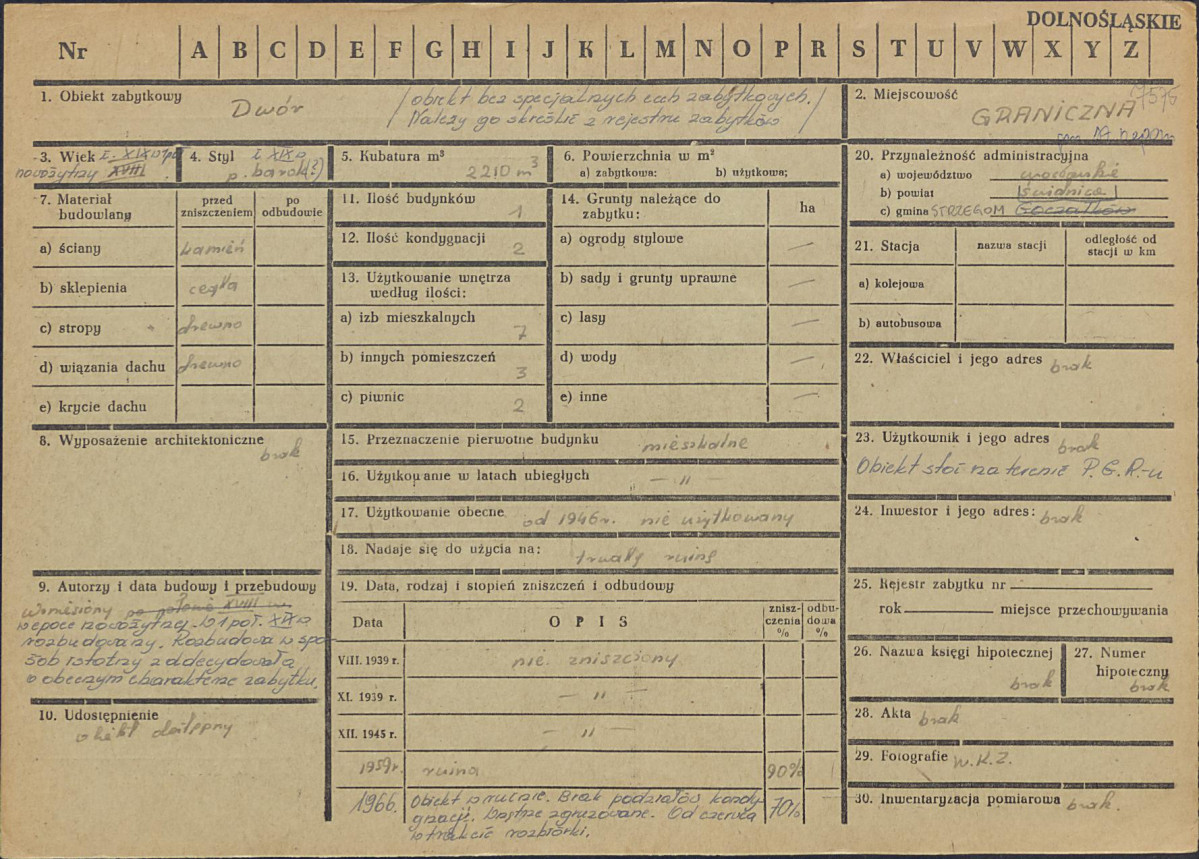 DOLNOŚLĄSKIE
Nr A B C D E F G H I J K L M N O P R S T U V W X Y Z
1. Obiekt zabytkowy Dwór
/obiekt bez specjalnych cech zabytkowych.
Należy go skreślić z rejestru zabytków/
2. Miejscowość 7575
GRANICZNA
3. Wiek I. XIX w
nowożytny XVIII
4. Styl I XIX w
p. barok(?)
5. Kubatura m³
2210 m³
6. Powierzchnia w m²
a) zabytkowa: b) użytkowa;
7. Materiał budowlany
przed zniszczeniem
po odbudowie
a) ściany kamień
b) sklepienia cegła
c) stropy drewno
d) wiązania dachu drewno
e) krycie dachu
8. Wyposażenie architektoniczne
brak
9. Autorzy i data budowy i przebudowy
Wzniesiony po połowie XVIII w.
w epoce nowożytnej. W 1 poł. XIX w
rozbudowany. Rozbudowa w spo-
sób istotny zadecydowała
o obecnym charakterze zabytku.
10. Udostępnienie
obiekt dostępny
11. Ilość budynków
1
12. Ilość kondygnacji
2
13. Użytkowanie wnętrza
według ilości:
a) izb mieszkalnych
7
b) innych pomieszczeń
3
c) piwnic
2
14. Grunty należące do
zabytku: ha
a) ogrody stylowe —
b) sady i grunty uprawne —
c) lasy —
d) wody —
e) inne —
15. Przeznaczenie pierwotne budynku mieszkalne
16. Użytkowanie w latach ubiegłych — „ —
17. Użytkowanie obecne od 1946 r. nie użytkowany
18. Nadaje się do użycia na: trwałą ruinę
19. Data, rodzaj i stopień zniszczeń i odbudowy
Data OPIS znisz-czenia % odbu-dowa %
VIII. 1939 r. nie zniszczony
XI. 1939 r. — „ —
XII. 1945 r. — „ —
1959 r. ruina 90%
1966. Obiekt w ruinie. Brak podziałów kondy-
gnacji. Wnętrze zgruzowane. Od czerwca
w trakcie rozbiórki. 70%
20. Przynależność administracyjna
a) województwo wrocławskie
b) powiat Świdnica
c) gmina STRZEGOM Goczałków
21. Stacja
nazwa stacji
odległość od
stacji w km
a) kolejowa
b) autobusowa
22. Właściciel i jego adres brak
23. Użytkownik i jego adres brak
Obiekt stoi na terenie P.G.R.-u
24. Inwestor i jego adres: brak
25. Rejestr zabytku nr
rok miejsce przechowywania
26. Nazwa księgi hipotecznej
brak
27. Numer
hipoteczny
brak
28. Akta brak
29. Fotografie W.K.Z.
30. Inwentaryzacja pomiarowa brak.